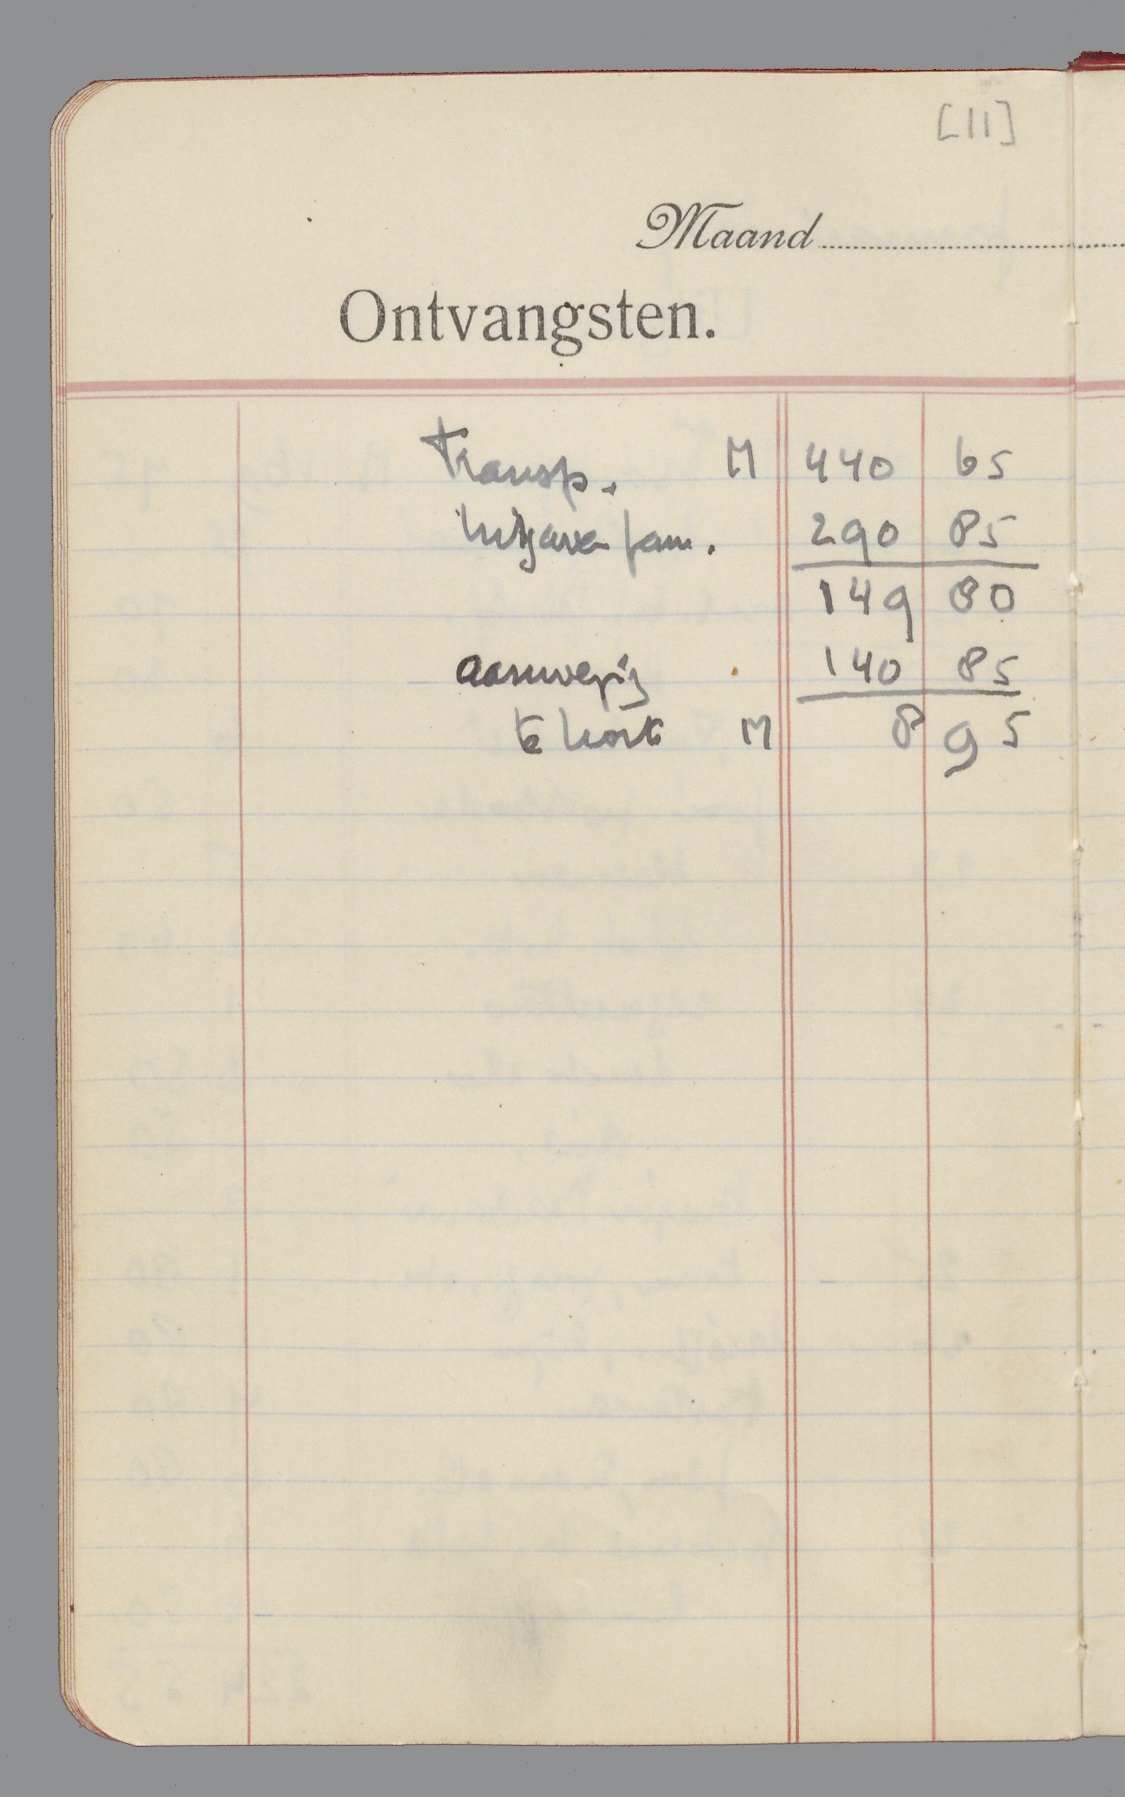 [11]
Maand
Ontvangsten.
Transp. M 440 65
Uitgaven fam. 290 85
149 80
aanwezig 140 85
te kort M 8 95